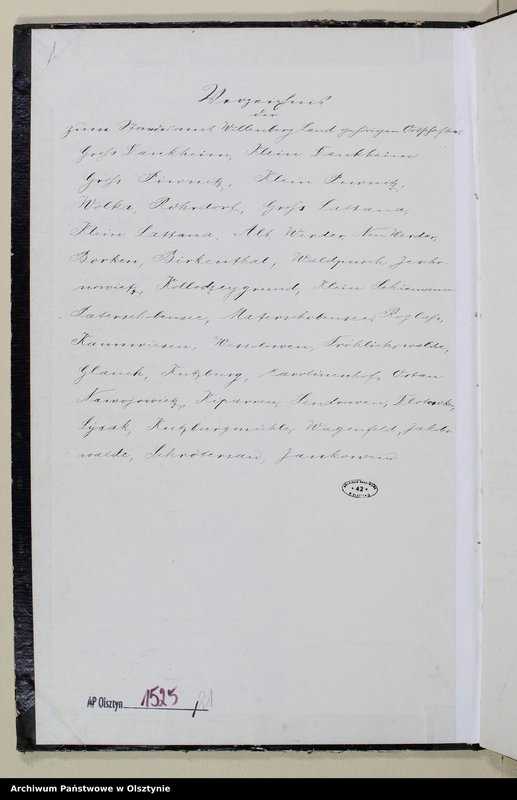 Verzeichnis
der
zum Standesamt Willenberg Land gehörigen Ortschaften
Groß Dankheim, Klein Dankheim
Groß Piwnitz, Klein Piwnitz,
Wolka, Rohrdorf, Groß Lattana,
Klein Lattana, Alt Werder, Neu Werder,
Borken, Birkenthal, Waldpusch, Jeroko-
nowietz, Kollodzeygrund, Klein Schiemanen
Paterschobensee, Materschobensee, Röglas,
Kannwiesen, Wessolowen, Fröhlichswalde,
Glauch, Kutzburg, Carolinenhof, Ostau
Nawojowietz, Kiparren, Sendrowen,
Lysak, Kutzburgmühle, Wagenfeld, Jakobs-
walde, Schrötersau, Jankowen
42
AP Olsztyn 1525
Archiwum Państwowe w Olsztynie